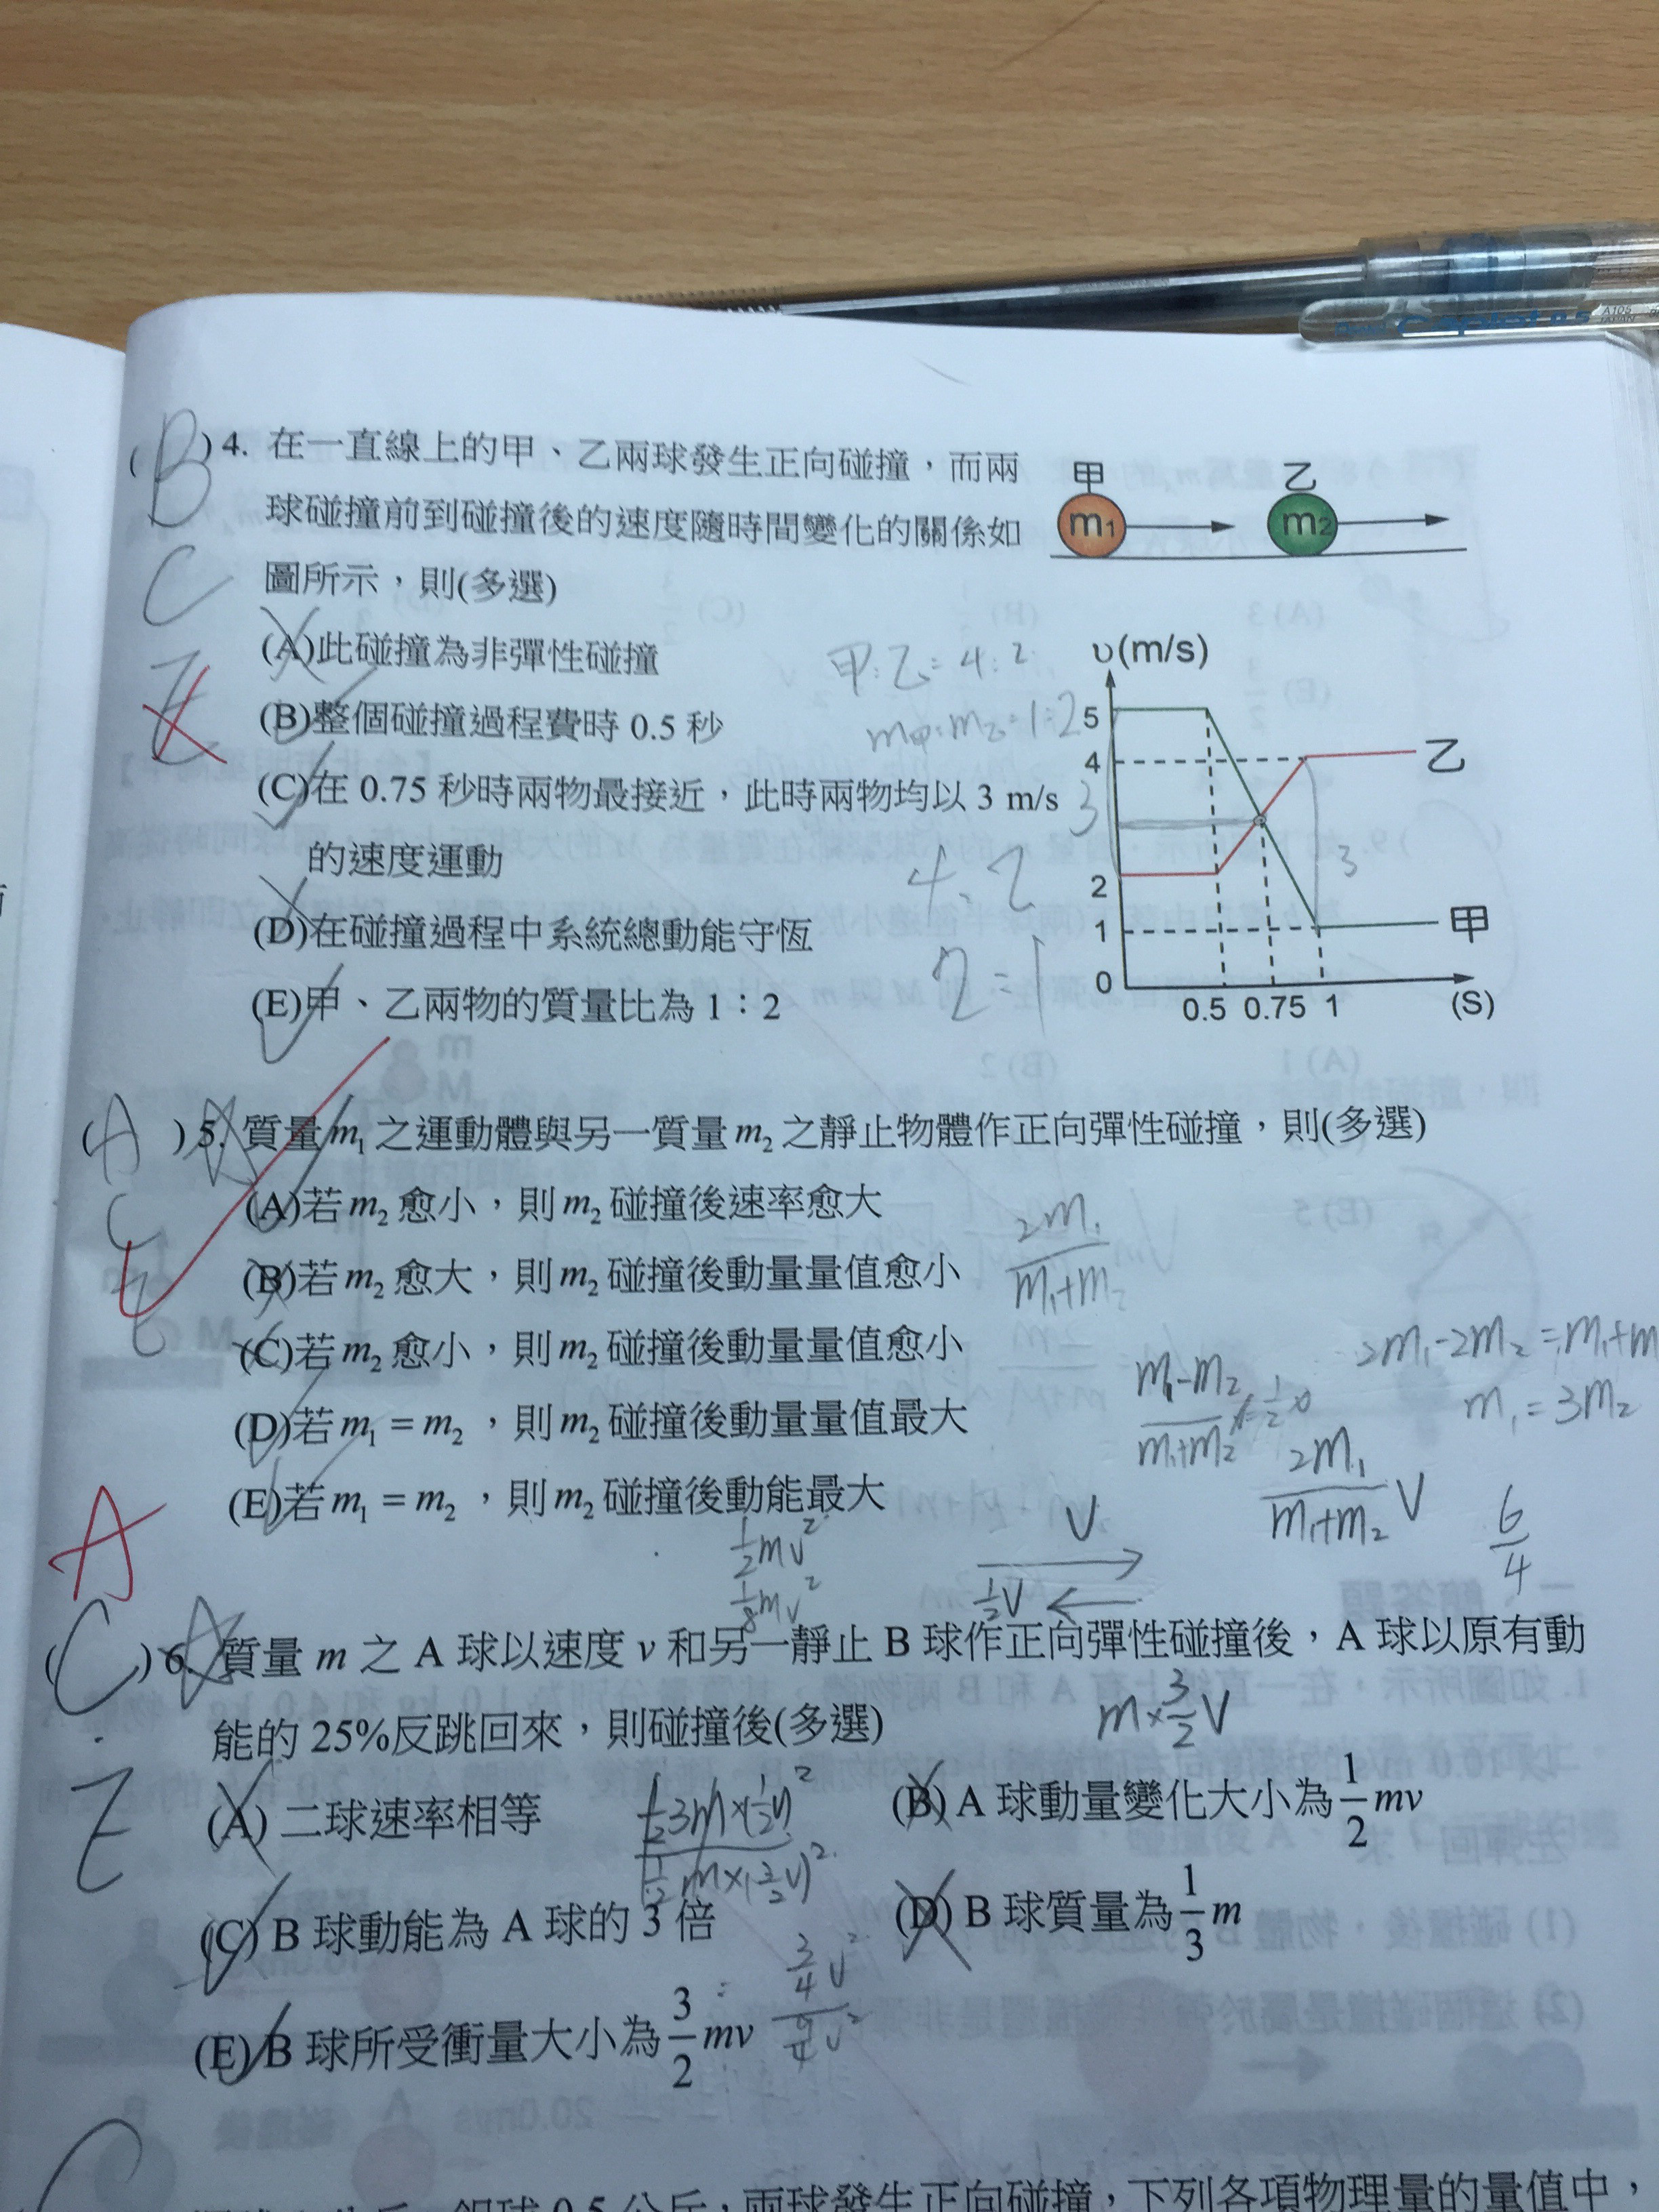 ( B ) 4. 在一直線上的甲、乙兩球發生正向碰撞，而兩
球碰撞前到碰撞後的速度隨時間變化的關係如
圖所示，則(多選)
(A)此碰撞為非彈性碰撞
(B)整個碰撞過程費時 0.5 秒
(C)在 0.75 秒時兩物最接近，此時兩物均以 3 m/s
的速度運動
(D)在碰撞過程中系統總動能守恆
(E)甲、乙兩物的質量比為 1：2
C
E
甲 乙
m1 m2
甲:乙=4:2
m甲:m乙=1:2
4:2
2=1
υ(m/s)
5
4
3
2
1
0
0.5 0.75 1 (S)
乙
甲
3
( A ) 5. 質量 m₁ 之運動體與另一質量 m₂ 之靜止物體作正向彈性碰撞，則(多選)
(A)若 m₂ 愈小，則 m₂ 碰撞後速率愈大
(B)若 m₂ 愈大，則 m₂ 碰撞後動量量值愈小
(C)若 m₂ 愈小，則 m₂ 碰撞後動量量值愈小
(D)若 m₁ = m₂ ，則 m₂ 碰撞後動量量值最大
(E)若 m₁ = m₂ ，則 m₂ 碰撞後動能最大
C
E
2m₁/(m₁+m₂)
2m₁-2m₂=m₁+m
m₁=3m₂
2m₁/(m₁+m₂) V
6/4
V
½V
½mv²
⅛mv²
A
( C ) 6. 質量 m 之 A 球以速度 v 和另一靜止 B 球作正向彈性碰撞後，A 球以原有動
能的 25%反跳回來，則碰撞後(多選)
(A) 二球速率相等 (B) A 球動量變化大小為 1/2 mv
(C) B 球動能為 A 球的 3 倍 (D) B 球質量為 1/3 m
(E) B 球所受衝量大小為 3/2 mv
E
m×3/2 V
Capplet 0.5
兩球發生正向碰撞，下列各項物理量的量值中，